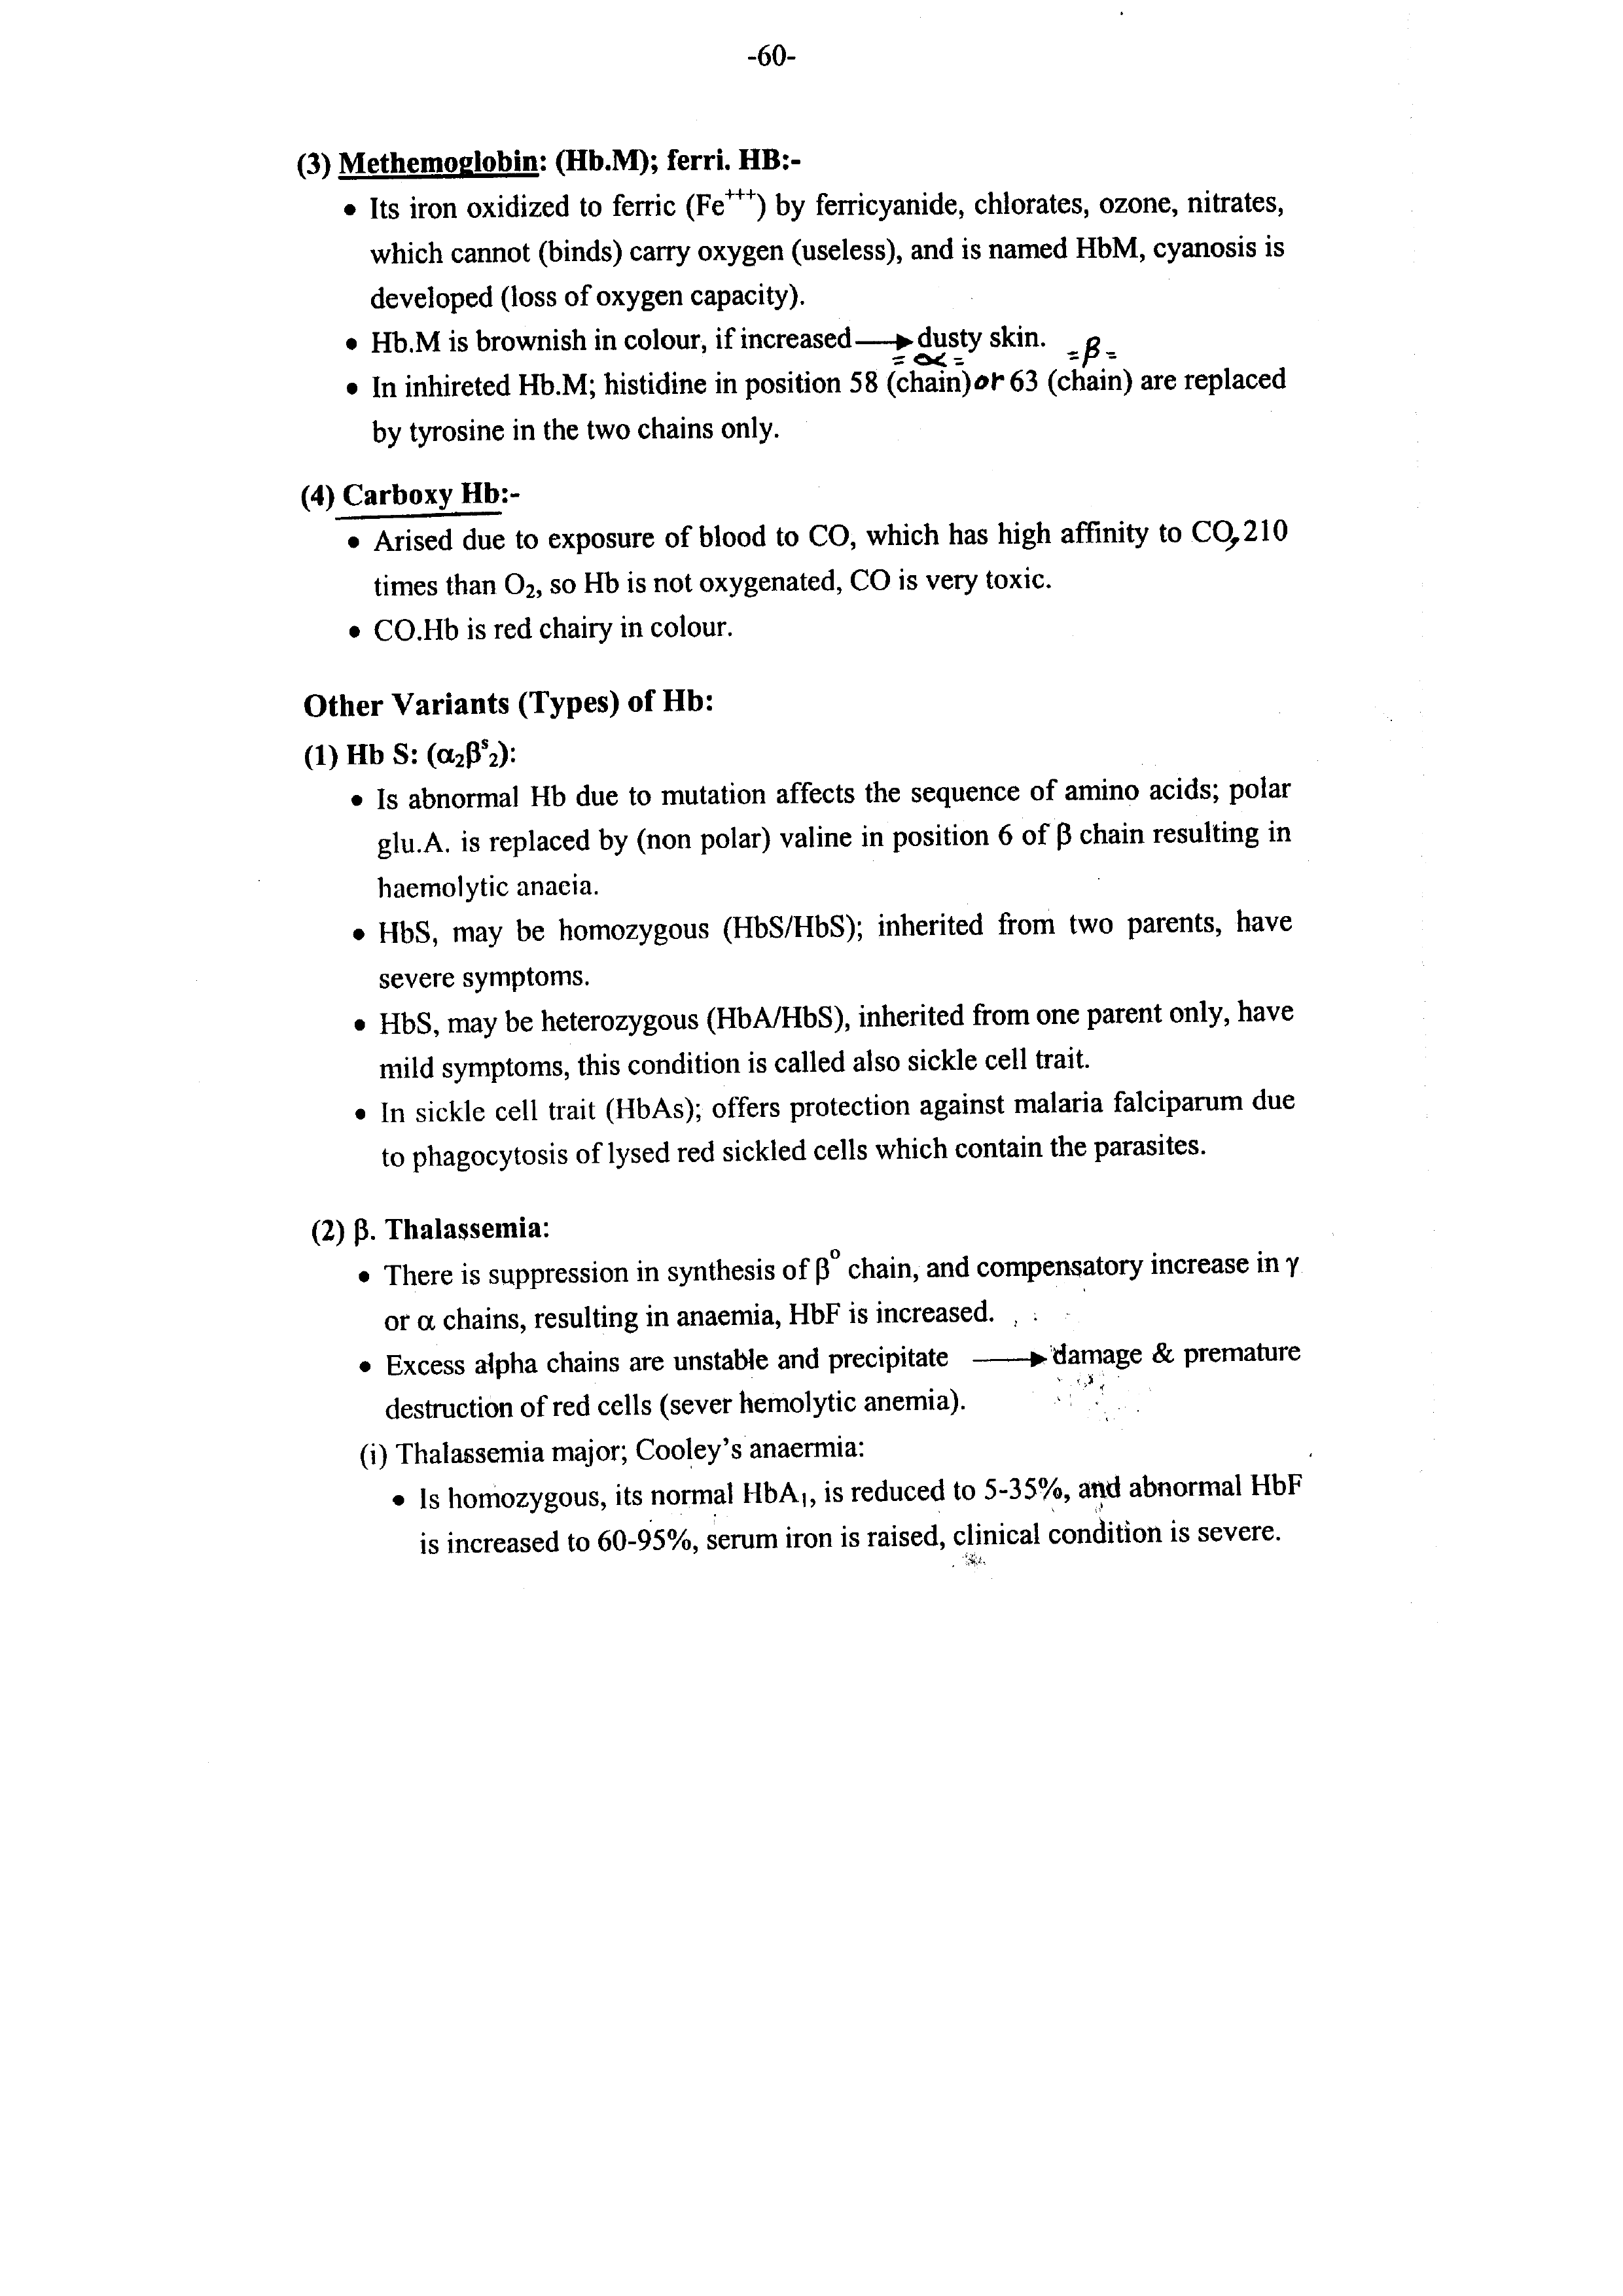 -60-
(3) Methemoglobin: (Hb.M); ferri. HB:-
• Its iron oxidized to ferric (Fe+++) by ferricyanide, chlorates, ozone, nitrates,
which cannot (binds) carry oxygen (useless), and is named HbM, cyanosis is
developed (loss of oxygen capacity).
• Hb.M is brownish in colour, if increased → dusty skin.
= α = = β =
• In inhireted Hb.M; histidine in position 58 (chain) or 63 (chain) are replaced
by tyrosine in the two chains only.
(4) Carboxy Hb:-
• Arised due to exposure of blood to CO, which has high affinity to CO, 210
times than O₂, so Hb is not oxygenated, CO is very toxic.
• CO.Hb is red chairy in colour.
Other Variants (Types) of Hb:
(1) Hb S: (α₂βˢ₂):
• Is abnormal Hb due to mutation affects the sequence of amino acids; polar
glu.A. is replaced by (non polar) valine in position 6 of β chain resulting in
haemolytic anaeia.
• HbS, may be homozygous (HbS/HbS); inherited from two parents, have
severe symptoms.
• HbS, may be heterozygous (HbA/HbS), inherited from one parent only, have
mild symptoms, this condition is called also sickle cell trait.
• In sickle cell trait (HbAs); offers protection against malaria falciparum due
to phagocytosis of lysed red sickled cells which contain the parasites.
(2) β. Thalassemia:
• There is suppression in synthesis of β° chain, and compensatory increase in γ
or α chains, resulting in anaemia, HbF is increased.
• Excess alpha chains are unstable and precipitate → damage & premature
destruction of red cells (sever hemolytic anemia).
(i) Thalassemia major; Cooley's anaermia:
• Is homozygous, its normal HbA₁, is reduced to 5-35%, and abnormal HbF
is increased to 60-95%, serum iron is raised, clinical condition is severe.